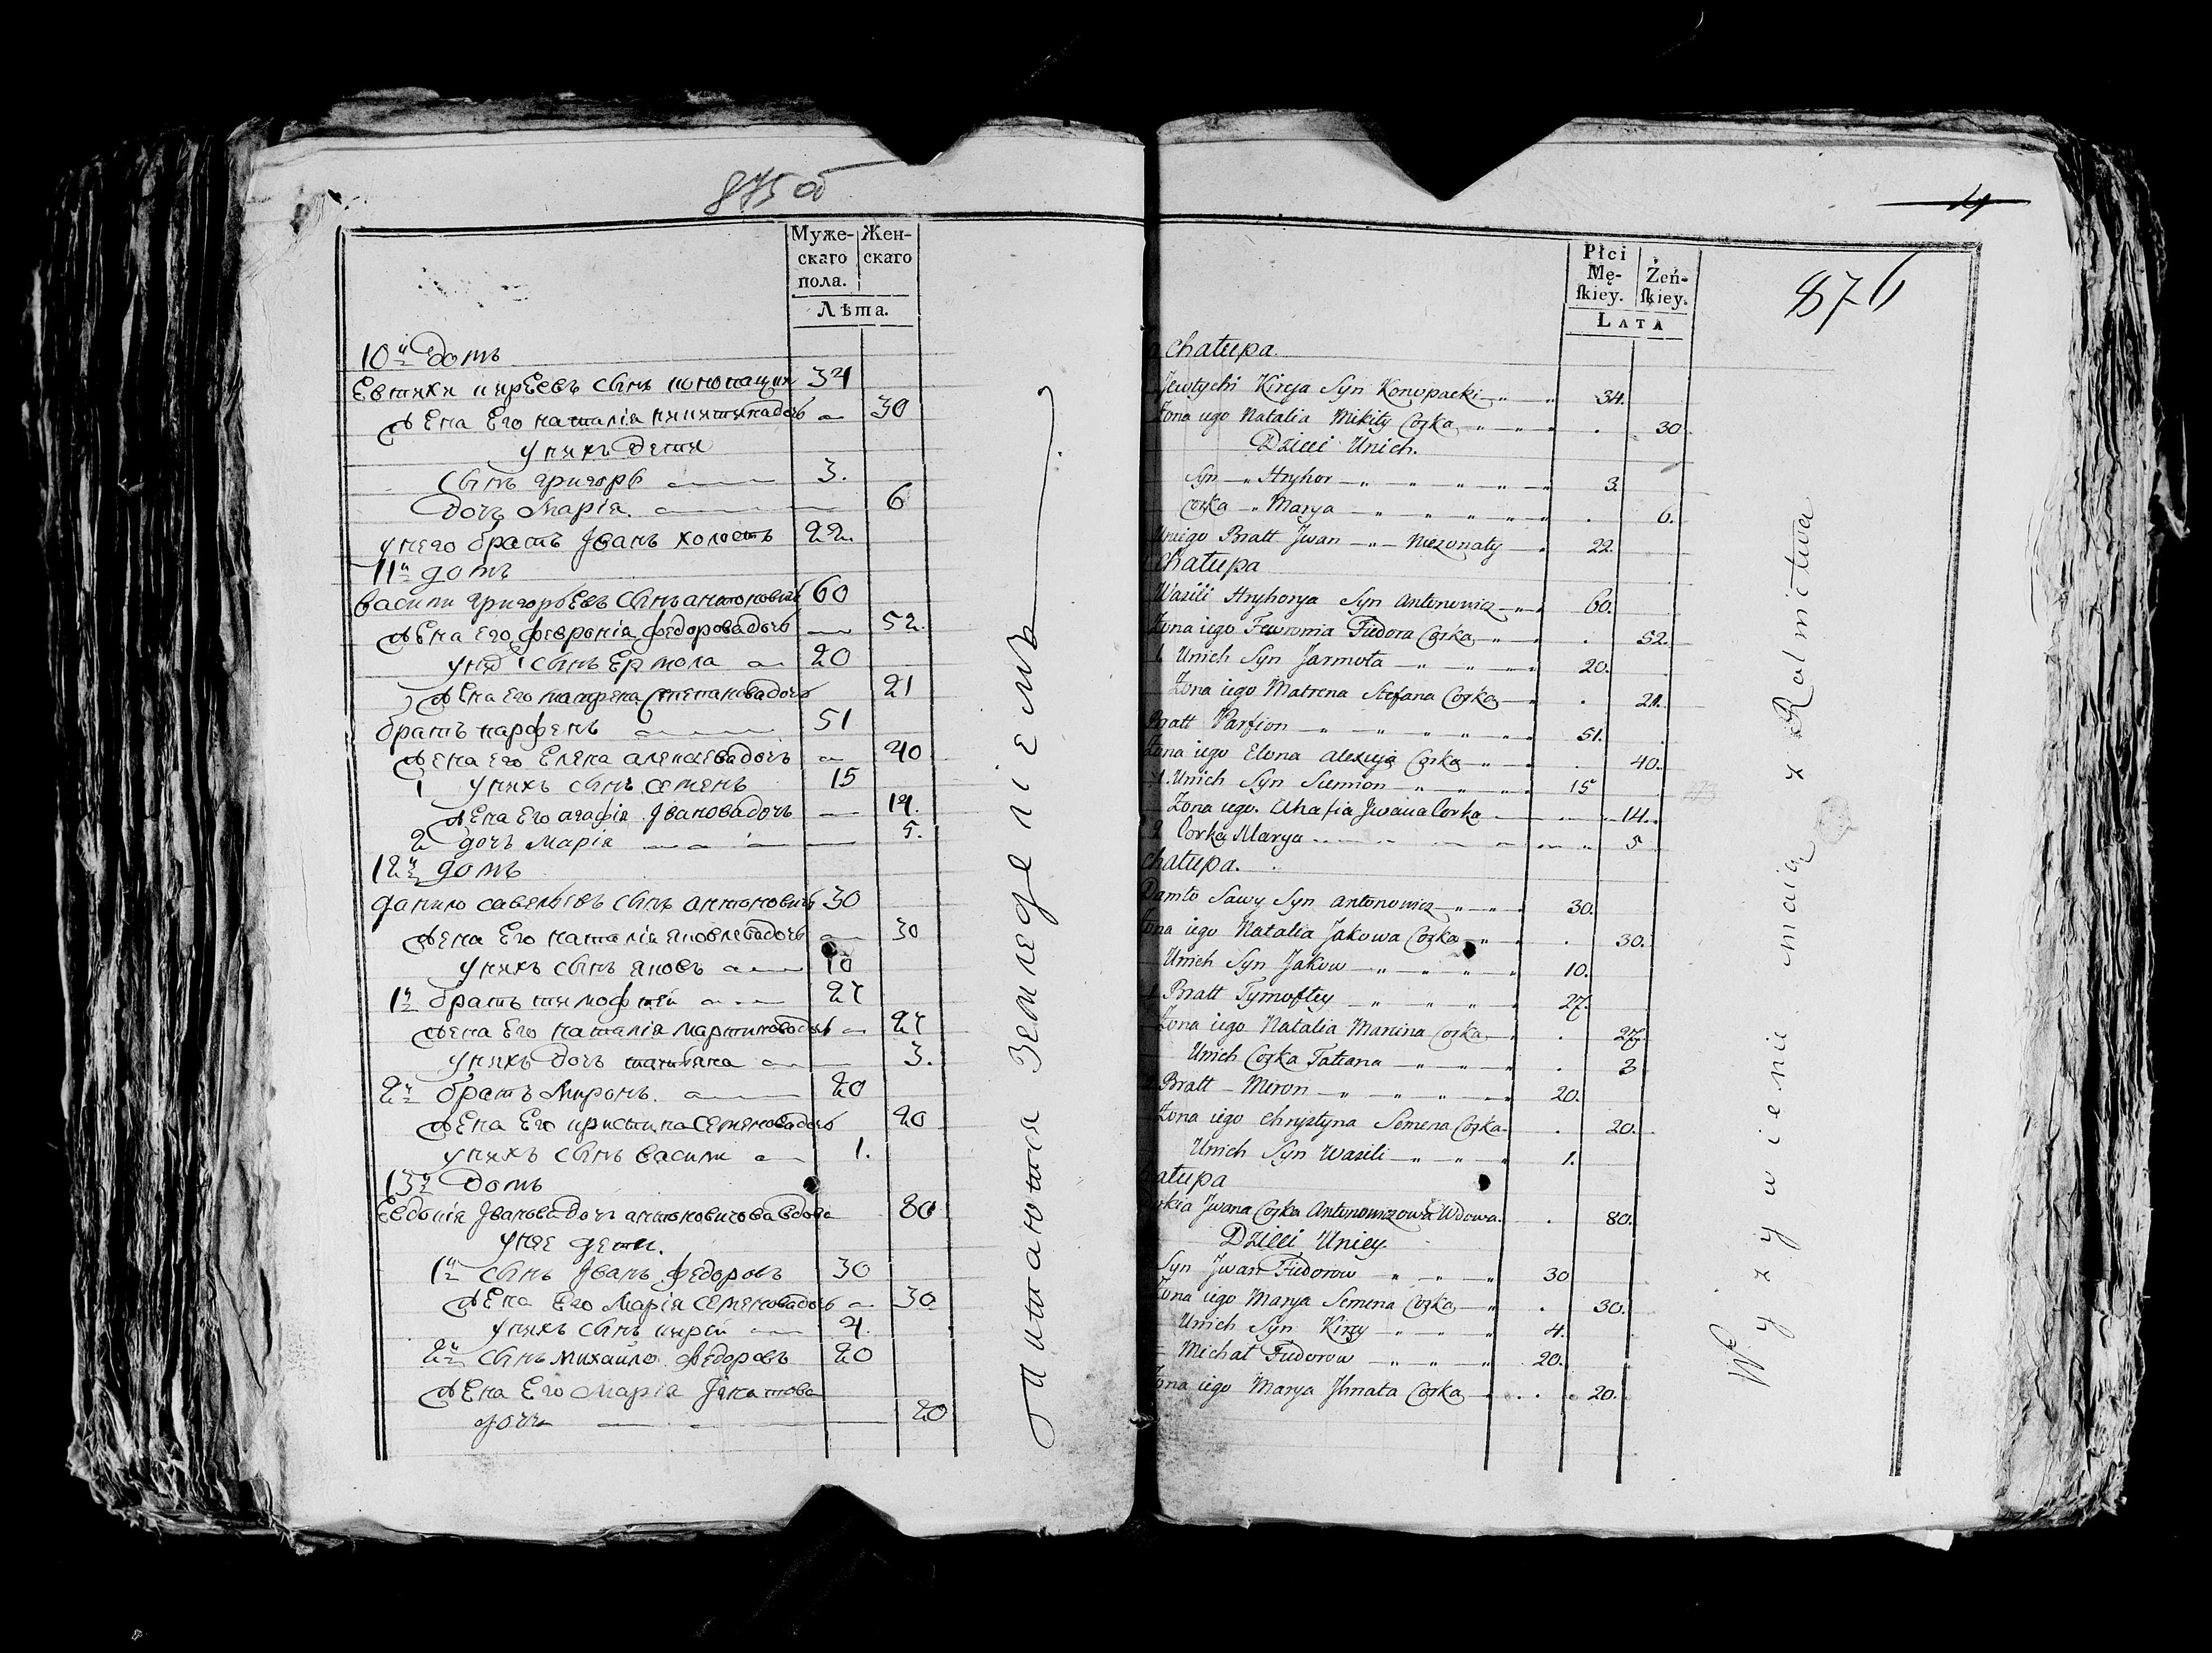 875 об
Муже-
скаго
пола.
Жен-
скаго
Лѣта.
10й Домъ
Евтихи Кирѣевъ сынъ Конопацки 34
Жена Его наталія никитина дочь 30
у нихъ дети
сынъ григорь 3.
дочь Марія 6
у него братъ Іванъ холостъ 22.
11й домъ
васили григорьевъ сынъ антоновичь 60
жена его февронія федорова дочь 52.
1 сынъ Ермола 20
Жена Его матрена степанова дочь 21
братъ парфенъ 51
жена его Елена алексеева дочь 40
1 у нихъ сынъ семенъ 15
жена Его агафія Іванова дочь 14.
2 дочь марія 5.
12й домъ
данило савельевъ сынъ антоновичь 30
жена Его наталія яковлева дочь 30
у нихъ сынъ яковъ 10
1й братъ тимофей 27
жена Его наталія мартинова дочь 27
у нихъ дочь татьяна 3.
2й братъ Миронъ 20
жена Его кристина семенова дочь 20
у нихъ сынъ василі 1.
13й домъ
Евдокія Іванова дочь антоновичова вдова 80
у нее дети.
1й сынъ Іванъ федоровъ 30
жена Его Марія семенова дочь 30
у нихъ сынъ кирей 4.
2й сынъ михайло федоровъ 20
жена Его марія Ігнатова
дочь 20
Питаются Земледеліемъ
4
876
Płci
Mę-
ſkiey.
Żeń-
ſkiey.
LATA
Chałupa.
Jewtychi Kireja Syn Konopacki 34.
Żona iego Natalia Mikity Corka 30
Dzieci Unich.
Syn Hryhor 3.
Corka Marya 6.
Uniego Bratt Jwan Niezonaty 22.
Chałupa
Wasili Hryhorya Syn Antonowicz 60.
Żona iego Fewronia Fiedora Corka 52.
1. Unich Syn Jarmoła 20.
Żona iego Matrena Stefana Corka 21.
Bratt Parfion 51.
Żona iego Elona Alexieja Corka 40.
1. Unich Syn Siemion 15
Żona iego. Ahafia Jwana Corka 14.
2 Corka Marya 5
Chałupa.
Daniło Sawy Syn Antonowicz 30.
Żona iego Natalia Jakowa Corka 30.
Unich Syn Jakow 10.
1 Bratt Tymoftey 27.
Żona iego Natalia Marcina Corka 27.
Unich Corka Tatiana 3
2 Bratt Miron 20.
Żona iego Chrystyna Semena Corka 20.
Unich Syn Wasili 1.
Chałupa
Jwana Corka Antonowiczowa Wdowa. 80.
Dzieci Uniey
Syn Jwan Fiedorow 30
Żona iego Marya Semena Corka 30.
Unich Syn Kirey 4.
Michał Fiedorow 20.
Żona iego Marya Jhnata Corka 20.
Wyzywienie maią z Rolnictwa